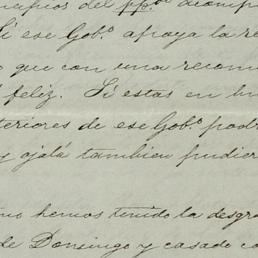 del pp.do acomp
Si ese Gob.o apoya la re
o que con una recom
feliz. Si estas en bu
teriores de ese Gob.o podr
y ojalá tambien pudier
mo hemos tenido la desgra
de Domingo y casado co